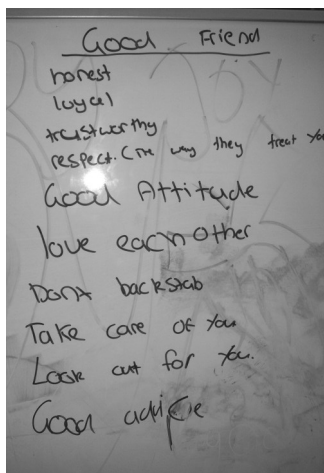 Good Friend
honest
loyal
trustworthy
respect. (The way they treat you
Good Attitude
love each other
Dont backstab
Take care of you
Look out for you.
Good advice